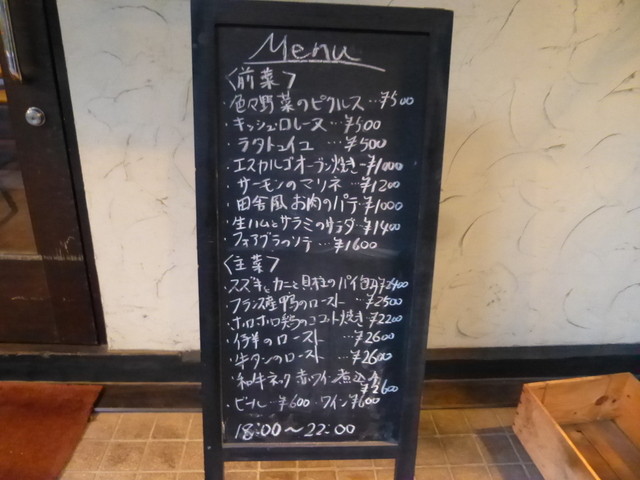 Menu
〈前菜〉
・色々野菜のピクルス…¥500
・キッシュ・ロレーヌ…¥500
・ラタトゥイユ…¥500
・エスカルゴオーブン焼き…¥1000
・サーモンのマリネ…¥1200
・田舎風お肉のパテ…¥1000
・生ハムとサラミのサラダ…¥1400
・フォアグラのソテ…¥1600
〈主菜〉
・スズキとカニと貝柱のパイ包み¥2400
・フランス産鴨のロースト…¥2500
・ホロホロ鶏のココット焼き¥2200
・仔羊のロースト…¥2600
・牛タンのロースト…¥2600
・和牛ネック赤ワイン煮込み
¥2600
・ビール…¥600 ワイン¥600
18:00〜22:00